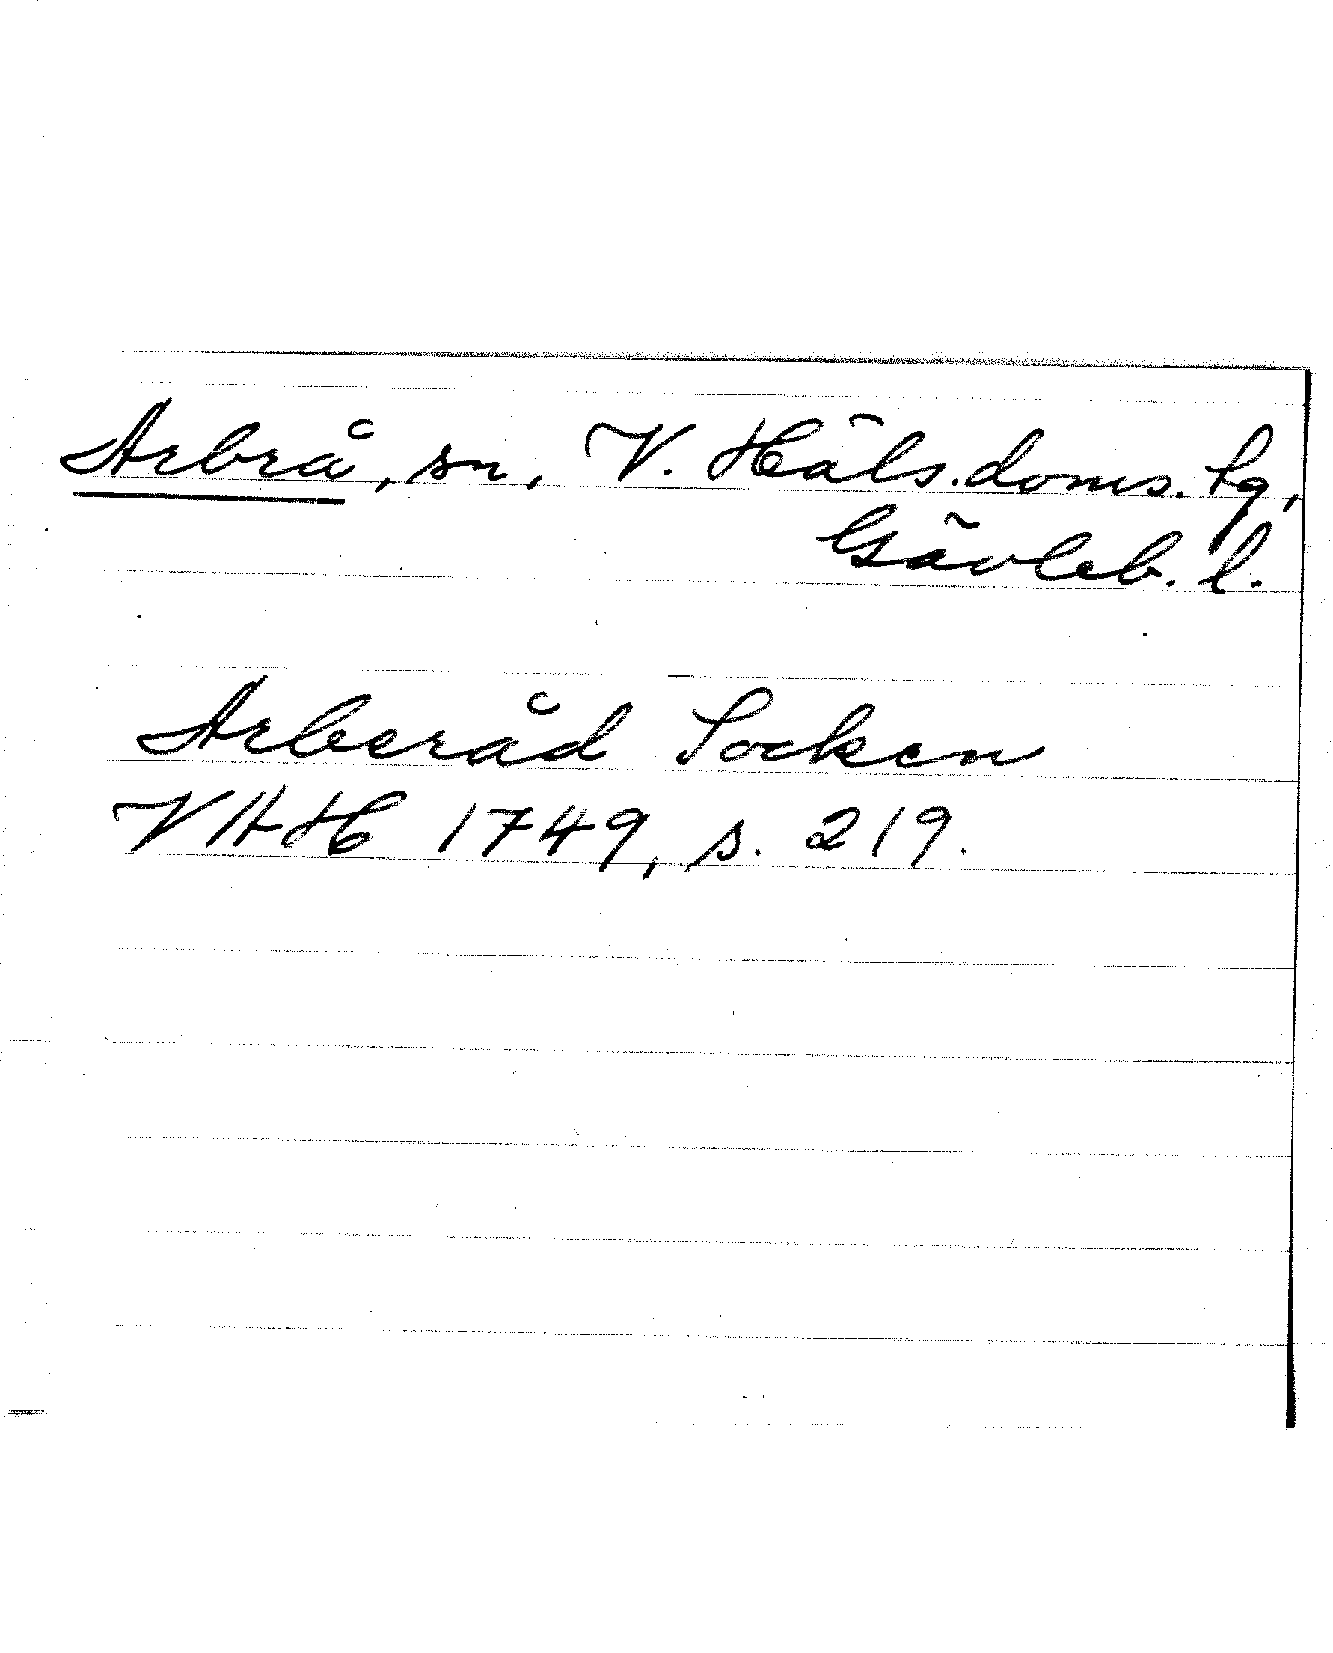 Arbrå, sn, V. Häls. doms. sg,
Gävleb. l.
Arberåd Socken
VAH 1749, s. 219.